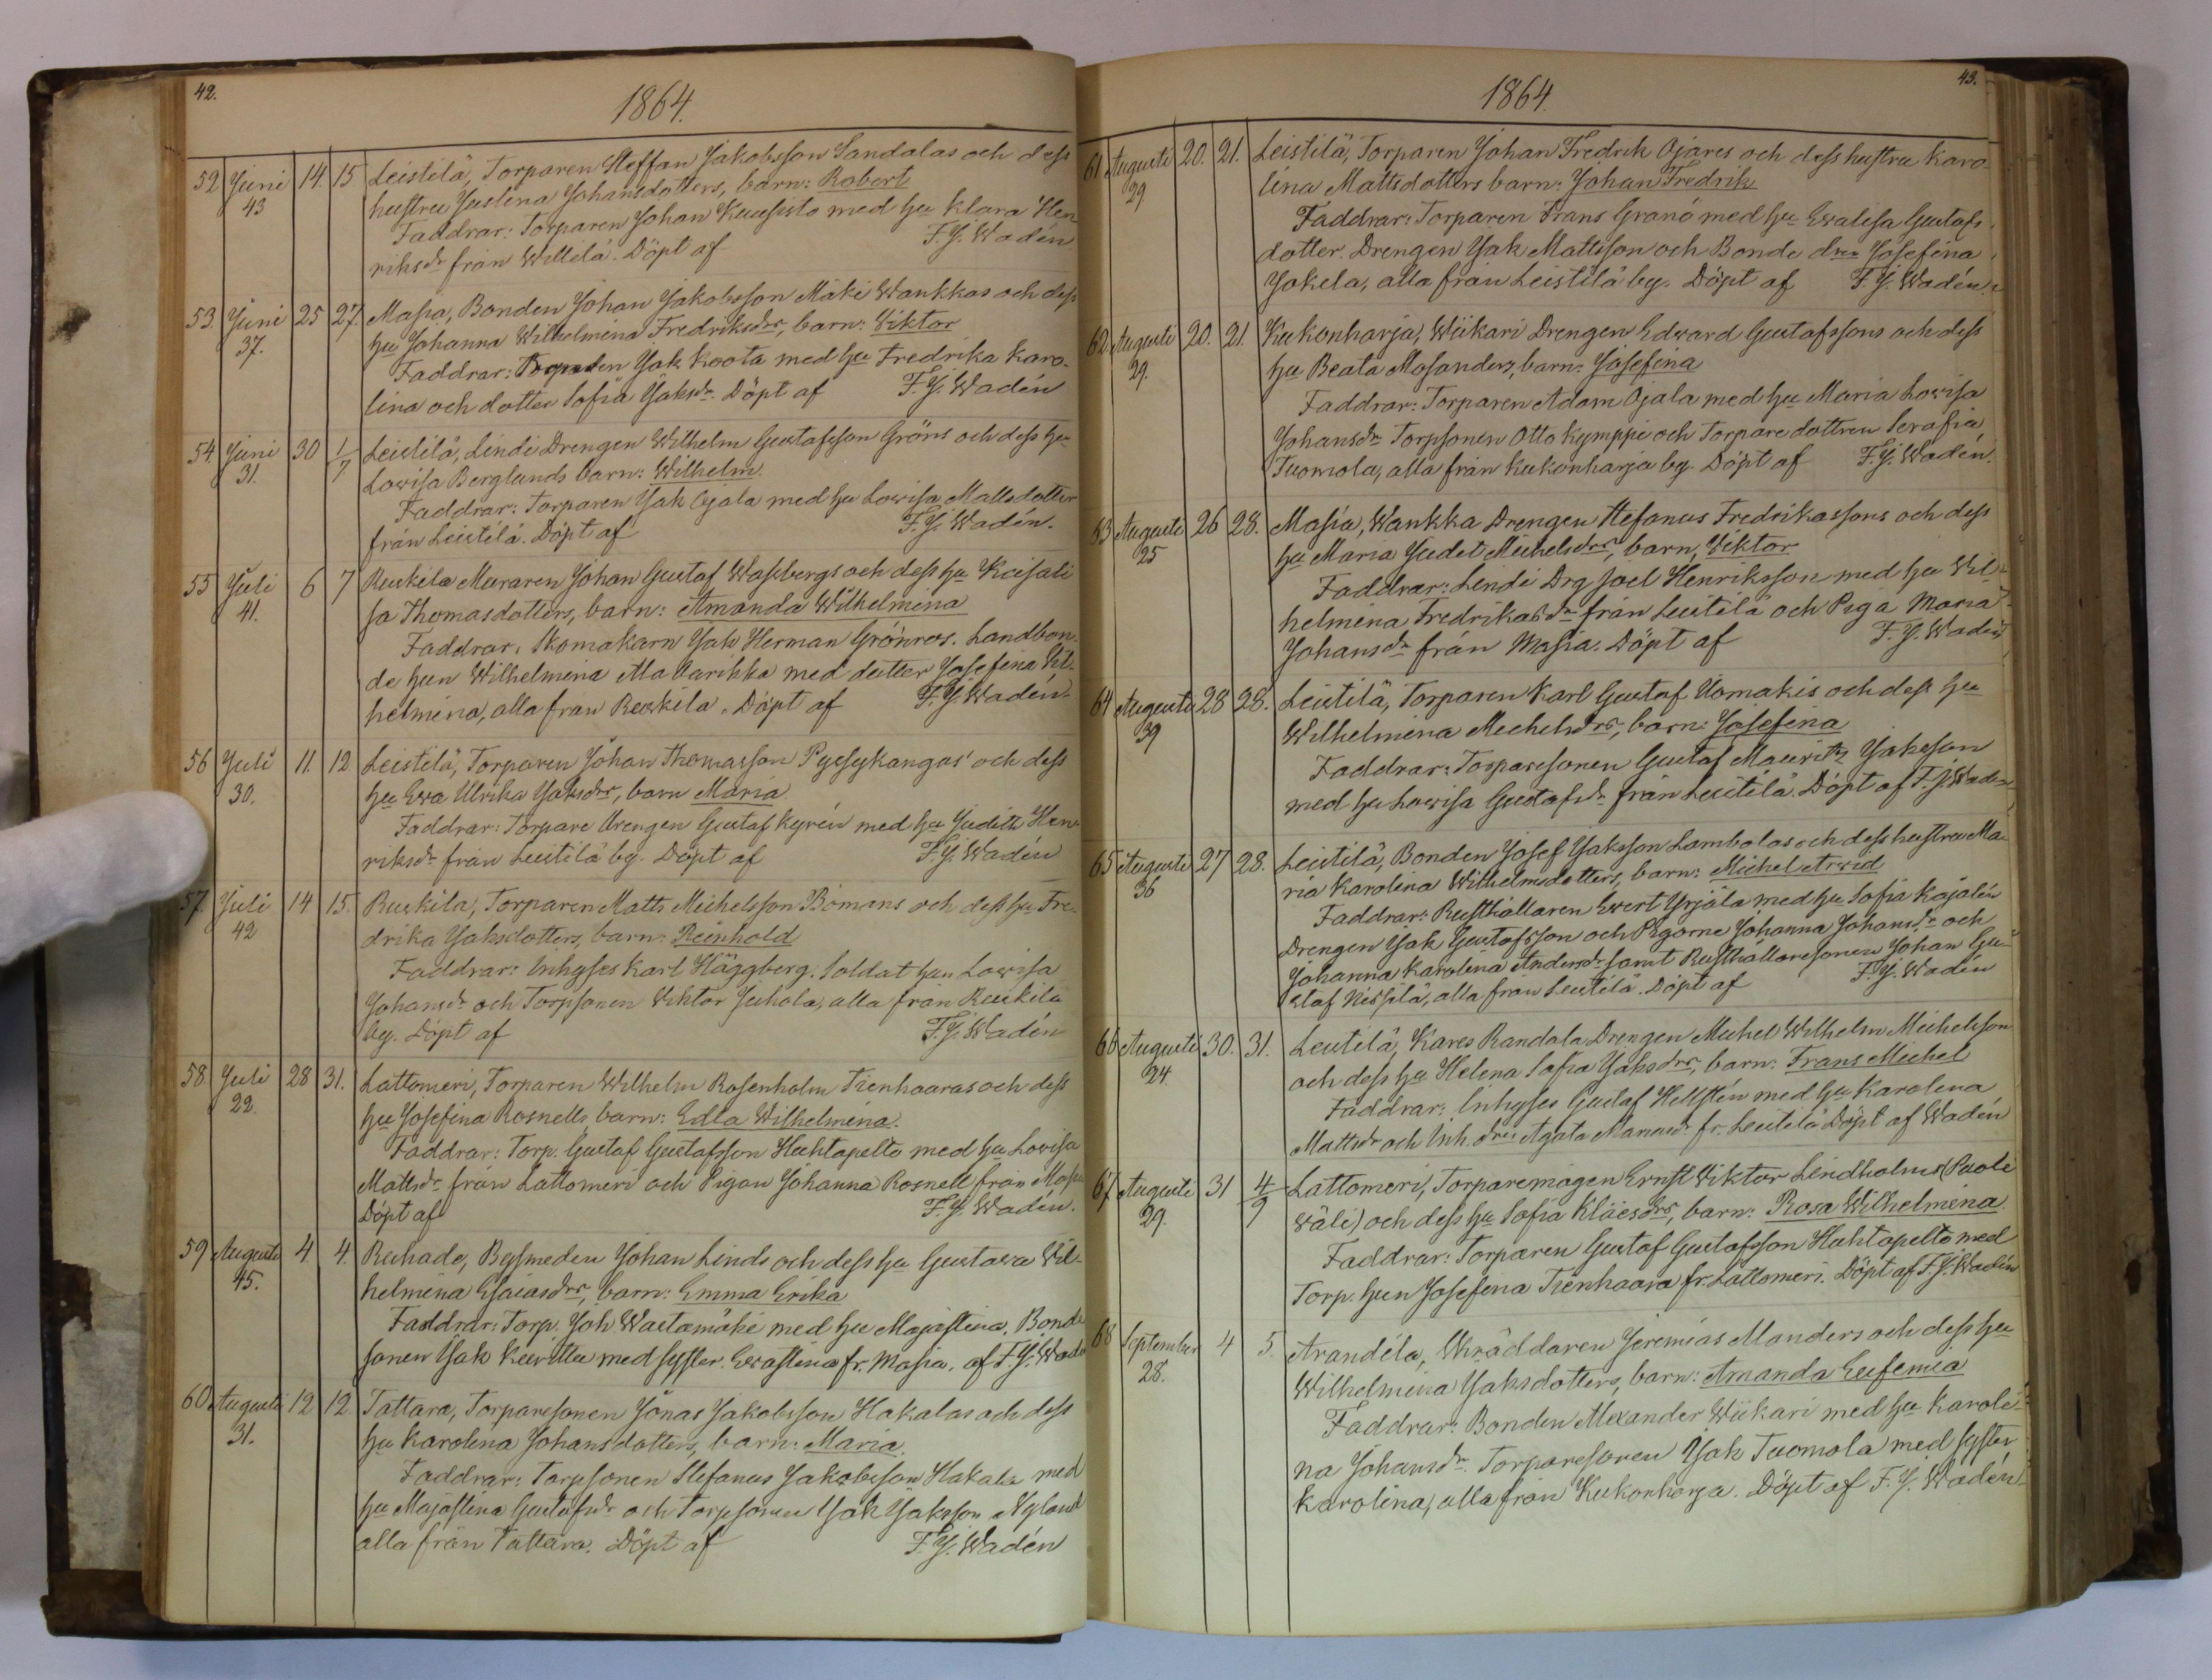 42.
1864.
52 Juni 14. 15 Leistilä, Torparen Steffan Jakobsson Sandalas och dess
43 hustru Justina Johansdotters, barn: Robert
Faddrar: Torparen Johan Kuusisto med hu Klara Hen
riksdr från Willilä. Döpt af F. J. Wadén
53. Juni 25 27. Masia, Bonden Johan Jakobsson Mäki Wankkas och dess
37. hu Johanna Wilhelmina Fredriksdrs, barn: Viktor
Faddrar: Torparen Isak Koota med hu Fredrika Karo-
lina och dotter Sofia Isaksdr. Döpt af F. J. Wadén
54. Juni 30 1/7 Leistilä, Lindi Drengen Wilhelm Gustafsson Gröns och dess hu
31. Lowisa Berglunds barn: Wilhelm.
Faddrar: Torparen Isak Ojala med hu Lowisa Mattsdotter
från Leistilä. Döpt af F. J. Wadén.
55 Juli 6 7 Ruskila Muraren Johan Gustaf Wassbergs och dess hu Kaisali
41. sa Thomasdotters, barn: Amanda Wilhelmina
Faddrar: Skomakarn Isak Herman Grönroos. Landbon-
de hun Wilhelmina Ala Carikka med dotter Josefina Wil-
helmina, alla från Ruskila. Döpt af F. J. Wadén.
56 Juli 11. 12 Leistilä, Torparen Johan Thomasson Pyssykangas' och dess
30. hu Ewa Ulrika Isaksdrs, barn Maria
Faddrar: Torpare Drengen Gustaf Kyrén med hu Judith Hen-
riksdr från Leistilä by. Döpt af F. J. Wadén
57. Juli 14 15. Ruskila, Torparen Matts Michelsson Bömans och dess hu Fre-
42 drika Isaksdotters, barn: Reinhold
Faddrar: Inhyses Karl Häggberg. Soldat hun Lowisa
Johansdr och Torpsonen Viktor Juhola, alla från Ruskila
by. Döpt af F. J. Wadén
58. Juli 28 31. Lattomeri, Torparen Wilhelm Rosenholm Tienhaaras och dess
22. hu Josefina Rosnells, barn: Edla Wilhelmina.
Faddrar: Torp. Gustaf Gustafsson Huhtapelto med hu Lowisa
Mattsdr från Lattomeri och Pigan Johanna Rosnell från Masia
Döpt af F. J. Wadén.
59 Augusti 4 4. Ruhade, Bysmeden Johan Linds och dess hu Gustawa Wil-
45. helmina Esaiasdrs, barn: Emma Erika
Faddrar: Torp. Joh Waitamäki med hu Majastina, Bonde
sonen Isak Kiwittu med syster Ewastina fr. Masia. af F. J. Wadé
60 Augusti 12 12 Tattara, Torparesonen Jonas Jakobsson Hakalas och dess
31. hu Karolina Johansdotters, barn: Maria.
Faddrar: Torpsonen Stefanus Jakobsson Hakala med
hu Majastina Gustafsdr och Torpsonen Isak Isaksson Nylund
alla från Tattara. Döpt af F. J. Wadén
43.
1864.
61 Augusti 20. 21. Leistilä, Torparen Johan Fredrik Ojares och dess hustru Karo-
29. lina Mattsdotters barn: Johan Fredrik
Faddrar: Torparen Frans Granö med hu Ewalisa Gustafs
dotter. Drengen Isak Mattsson och Bonde drn Josefina
Jakela, alla från Leistilä by. Döpt af F. J. Wadén.
62 Augusti 20. 21. Kukonharja, Wiikari Drengen Edward Gustafssons och dess
29. hu Beata Mosanders, barn: Josefina
Faddrar: Torparen Adam Ojala med hu Maria Lowisa
Johansdr Torpsonen Otto Kymppi och Torpare dottren Serafia
Tuomola, alla från Kukonharja by. Döpt af F. J. Wadén.
63 Augusti 26 28. Masia, Wankka Drengen Stefanus Fredrikssons och dess
25 hu Maria Judit Michelsdrs, barn, Viktor
Faddrar: Lindi Drg Joel Henriksson med hu Wil-
helmina Fredriksdr från Leistilä och Piga Maria
Johansdr från Masia. Döpt af F. J. Wadén
64 Augusti 28 28. Leistilä, Torparen Karl Gustaf Uomakis och dess hu
39 Wilhelmina Michelsdrs, barn: Josefina
Faddrar: Torparesonen Gustaf Mauritz Isaksson
med hu Lowisa Gustafsdr från Leistilä. Döpt af F. J. Wadén
65 Augusti 27 28. Leistilä, Bonden Josef Isaksson Lambolas och dess hustru Ma-
36 ria Karolina Wilhelmsdotters, barn: Michel Arwid
Faddrar: Rusthållaren Ewert Yrjälä med hu Sofia Kajalén
Drengen Isak Gustafsson och Pigorne Johanna Johansdr och
Johanna Karolina Andersdr samt Rusthållaresonen Johan Gu-
staf Nissilä, alla från Leistilä. Döpt af F. J. Wadén
66 Augusti 30. 31. Leistilä, Kares Randala Drengen Michel Wilhelm Michelsson
24. och dess hu Helena Sofia Isaksdrs, barn: Frans Michel
Faddrar: Inhyses Gustaf Hellstén med hu Karolina
Mattsdr och Inh. drn Agata fr. Leistilä Döpt af Wadén
67 Augusti 31 4/9 Lattomeri, Torparemågen Ernst Viktor Lindholms (Puoli
29. wäli) och dess hu Sofia Kläesdrs, barn: Rosa Wilhelmina.
Faddrar: Torparen Gustaf Gustafsson Huhtapelto med
Torp. hun Josefina Tienhaara fr. Lattomeri. Döpt af F. J. Wadén
68 September 4 5. Arandila, Skräddaren Jeremias Manders och dess hu
28. Wilhelmina Isaksdotters, barn: Amanda Eufemia
Faddrar: Bonden Alexander Wiikari med hu Karoli-
na Johansdr. Torparesonen Isak Tuomola med syster
Karolina, alla från Kukonharja. Döpt af F. J. Wadén.